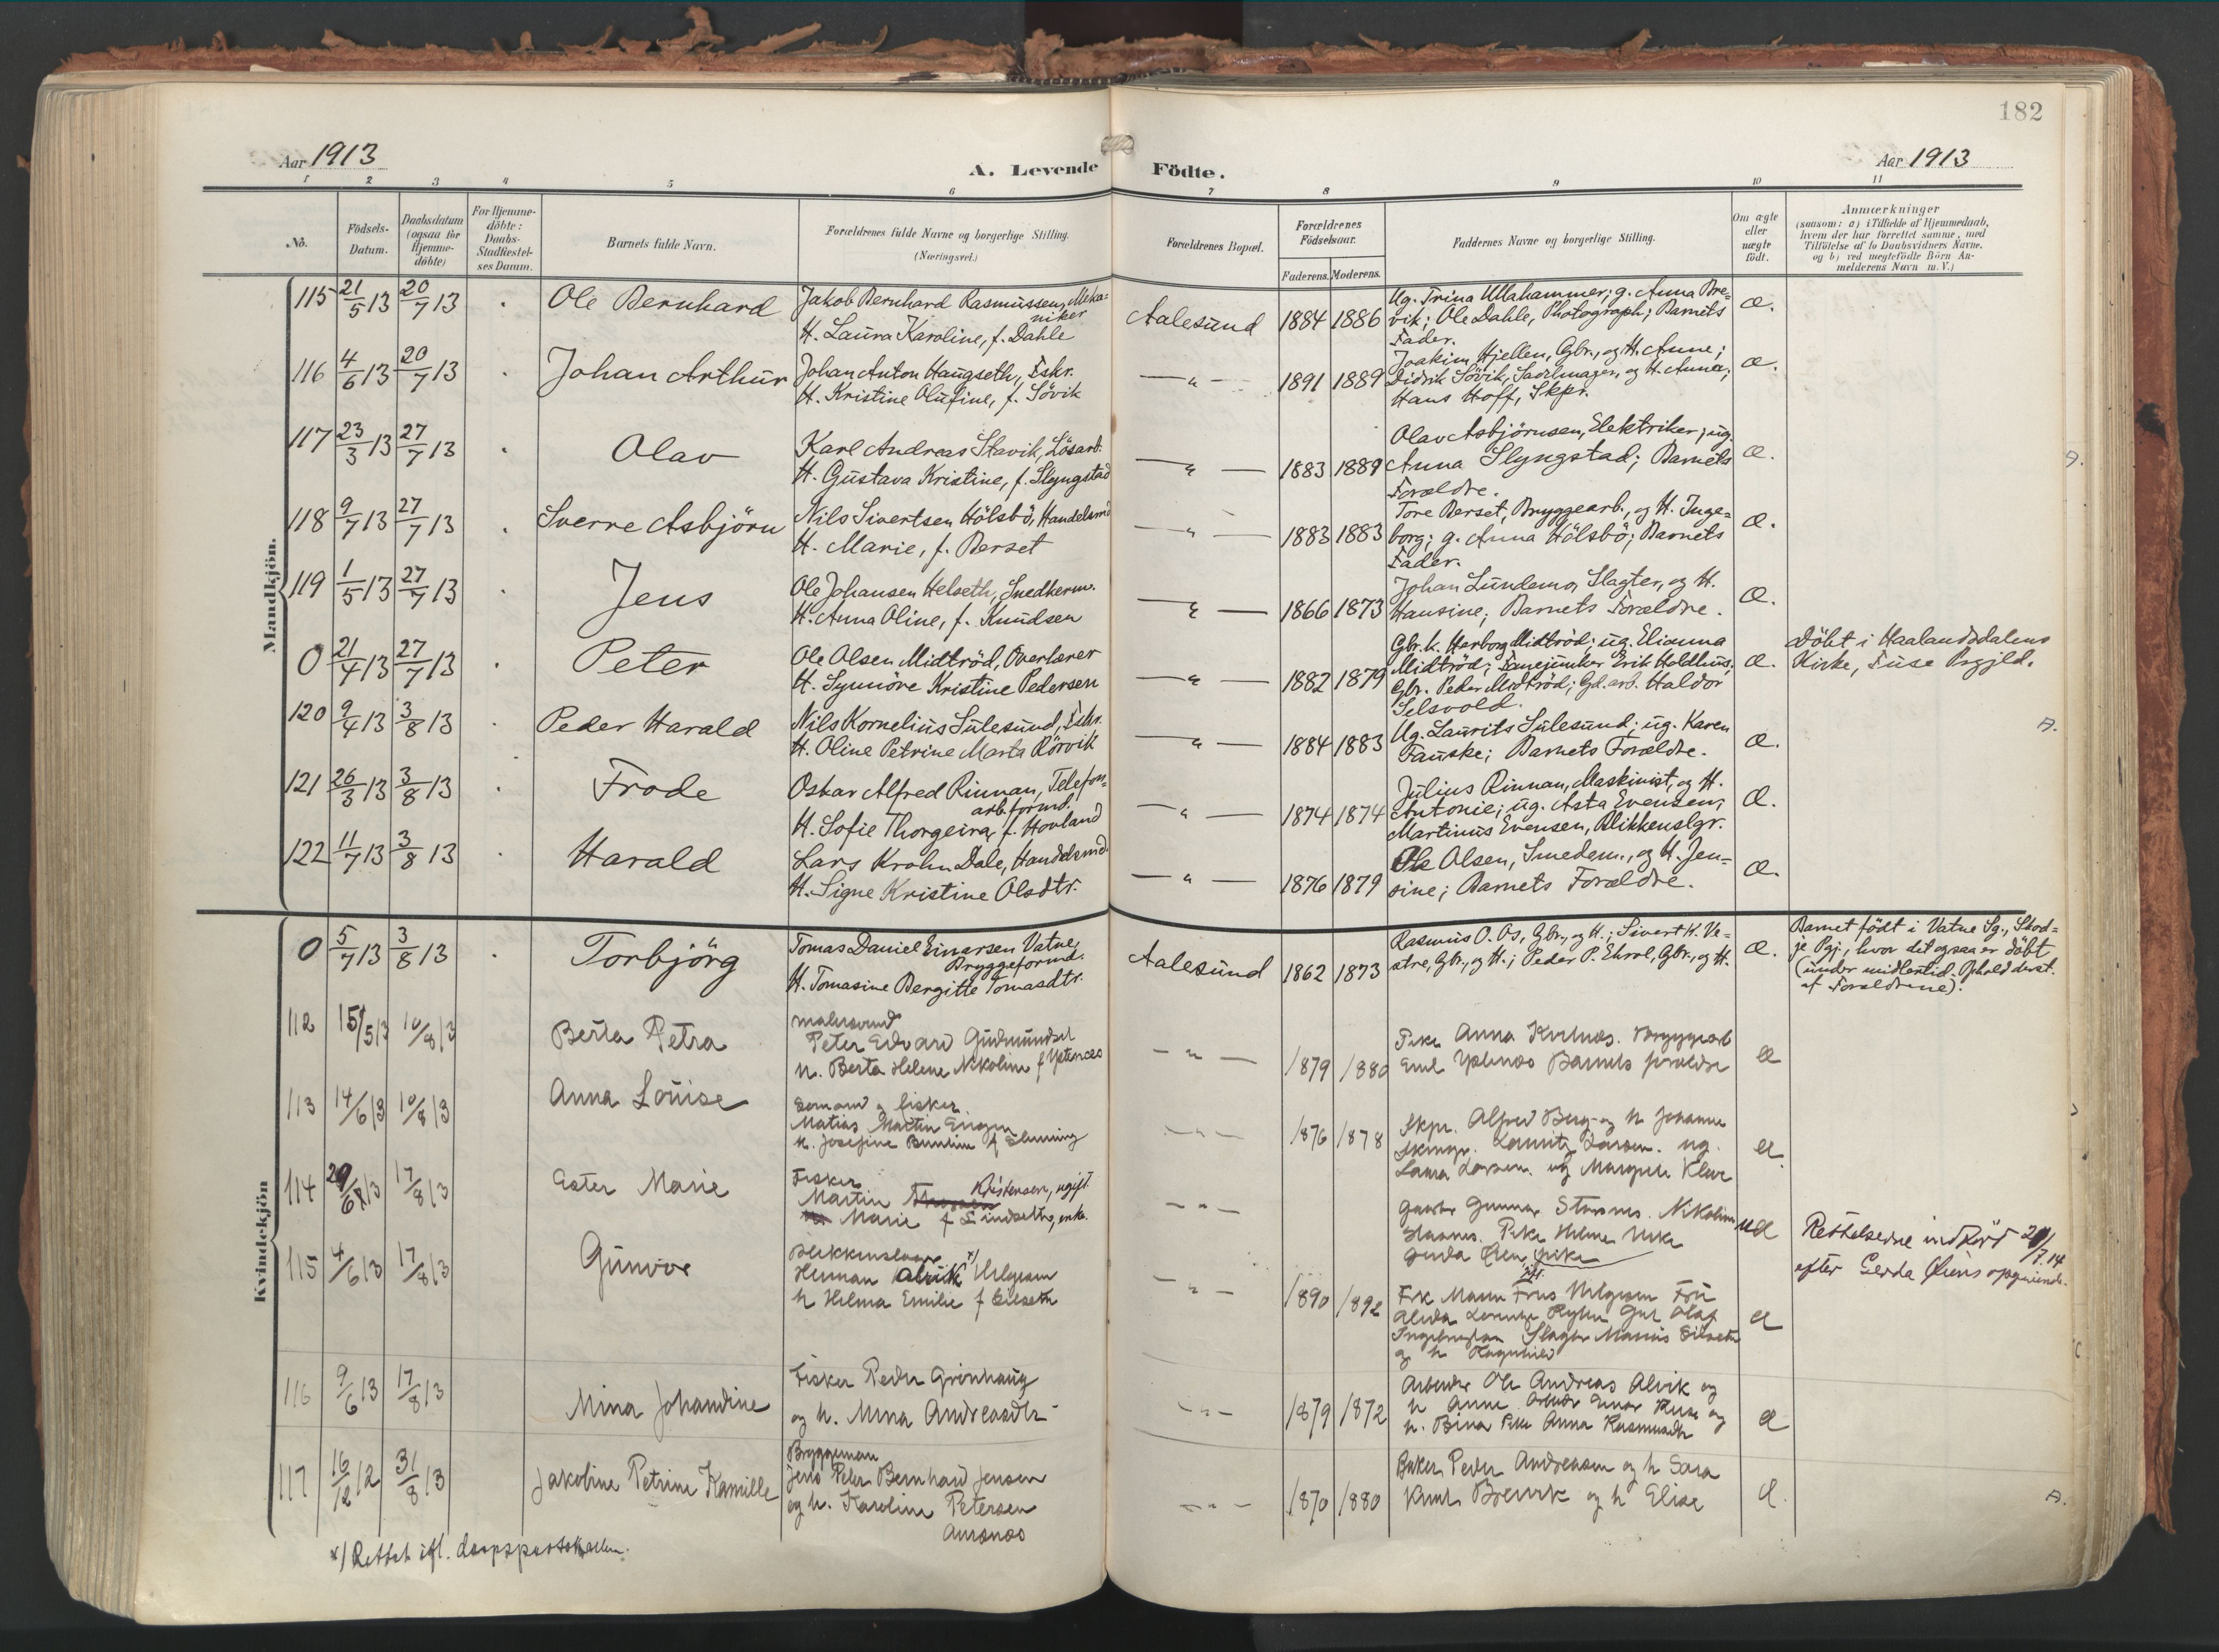 182
Aar 1913
A. Levende Födte.
Aar 1913
1 2 3 4 5 6 7 8 9 10 11
No.
Födsels-Datum.
Daabsdatum (ogsaa for Hjemme-döbte)
For Hjemme-döbte: Daabs-Stadfæstel-ses Datum.
Barnets fulde Navn.
Forældrenes fulde Navne og borgerlige Stilling. (Næringsvei.)
Forældrenes Bopæl.
Forældrenes Födselsaar.
Faderens. Moderens.
Faddernes Navne og borgerlige Stilling.
Om ægte eller uægte födt.
Anmærkninger
(saasom: a) i Tilfælde af Hjemmedaab,
hvem der har forrettet samme, med
Tilföielse af to Daabsvidners Navne,
og b) ved uegtefödte Börn An-
melderens Navn m. V.)
Mandkjön.
115 21/5 13 20/7 13 Ole Bernhard
Jakob Bernhard Rasmussen, Meka-
niker
H. Laura Karoline, f. Dahle
Aalesund 1884 1886
Ug. Trina Ullahammer; g. Anna Bre-
vik; Ole Dahle, Photograph; Barnets
Fader.
æ.
116 4/6 13 20/7 13 Johan Arthur
Johan Anton Haugseth, Fskr.
H. Kristine Olufine, f. Sövik
— " — 1891 1889
Joakim Hjellen, Gbr., og H. Anne;
Didrik Sövik, Sadelmager, og H. Anna;
Hans Hoff, Skpr.
æ.
117 23/3 13 27/7 13 Olav
Karl Andreas Slavik, Lösarb.
H. Gustava Kristine, f. Slyngstad
— " — 1883 1889
Olav Asbjörnsen, Elektriker; ug.
Anna Slyngstad; Barnets
Forældre.
æ.
118 9/7 13 27/7 13 Sverre Asbjörn
Nils Sivertsen Hölsbö, Handelsmd
H. Marie, f. Berset
— " — 1883 1883
Tore Berset, Bryggearb., og H. Inge-
borg; g. Anna Hölsbö; Barnets
Fader.
æ.
119 1/5 13 27/7 13 Jens
Ole Johansen Helseth, Snedkerm.
H. Anna Oline, f. Knudsen
— " — 1866 1873
Johan Lundemo, Slagter, og H.
Hansine; Barnets Forældre.
æ.
0 21/4 13 27/7 13 Peter
Ole Olsen Midtröd, Overlærer
H. Synnöve Kristine Pedersen
— " — 1882 1879
Gbr. k. Herborg Midtröd; ug. Elianna
Midtröd; Fanejunker Erik Holdhus;
Gbr. Peder Midtröd; Gd. arb. Haldor
Selsvold.
æ.
Döbt i Haalandsdalens
Kirke, Fuse Prgjld.
120 9/4 13 3/8 13 Peder Harald
Nils Kornelius Sulesund, Fskr.
H. Oline Petrine Marta Rörvik
— " — 1884 1883
Ug. Laurits Sulesund; ug. Karen
Fauske; Barnets Forældre.
æ.
121 26/3 13 3/8 13 Frode
Oskar Alfred Rinnan, Telefon-
arb.formd.
H. Sofie Thorgeira, f. Hovland
— " — 1874 1874
Julius Rinnan, Maskinist, og H.
Antonie; ug. Asta Evensen;
Martinus Evensen, Blikkenslgr.
æ.
122 11/7 13 3/8 13 Harald
Lars Krohn Dale, Handelsmd.
H. Signe Kristine Olsdtr.
— " — 1876 1879
Ole Olsen, Smedem., og H. Jen-
sine; Barnets Forældre.
æ.
Kvindekjön
0 5/7 13 3/8 13 Torbjörg
Tomas Daniel Einarsen Vatne,
Bryggeformd.
H. Tomasine Bergitte Tomasdtr.
Aalesund 1862 1873
Rasmus O. Os, Gbr., og H.; Sivert K. Ve-
stre, Gbr., og H.; Peder P. Ekrol, Gbr., og H.
æ.
Barnet födt i Vatne Sg., Skod-
je Pgj., hvor det ogsaa er döbt
(under midlertid. Ophold derst.
af Forældrene).
112 15/5 13 10/8 13 Berta Petra
Peter Edvard Gudmundset
H. Berta Helene Nikoline f
— " — 1879 1880
Pike Anna Bryggearb
Emil Barnets forældre
æ
113 14/6 13 10/8 13 Anna Louise
Sömand og fisker
Matias Martin
H. Josefine f
— " — 1876 1878
Skpr. Alfred Berg og h Johanne
Larsen. ug.
Laura Larsen. ug Margrete
æ.
114 29/6 13 17/8 13 Ester Marie
Fisker
Martin Kristensen, ugift
Marie f Lindseth, enke.
— " —
Gunnar Nikoline
Pike
Gerda Öien, pike
uæ
Rettelserne indfört 29/7.14
efter Gerda Öiens opgivende.
115 4/6 13 17/8 13 Gunvor
Blikkenslager x/
Herman Alrik Helgesen
h Hilma Emilie f Eilseth
— " — 1890 1892
Frk
Slagter Eilseth
og h Ragnhild
æ
116 9/6 13 17/8 13 Mina Johandine
Fisker Peder Grönhaug
og h. Mina Andreasdtr
— " — 1879 1872
Arbeider Ole Andreas Alvik og
h Anne Arbeider Einar og
h. Bina Pike Anna Rasmusdtr
æ
117 16/12 12 31/8 13 Jakobine Petrine Kamille
Bryggeman
Jens Peter Bernhard Jensen
og h. Karoline Petersen
— " — 1870 1880
Peder Andreasen og h Sara
Knut Brevik og h Elise
æ.
x/ Rettet ifl. daapsprotokollen.